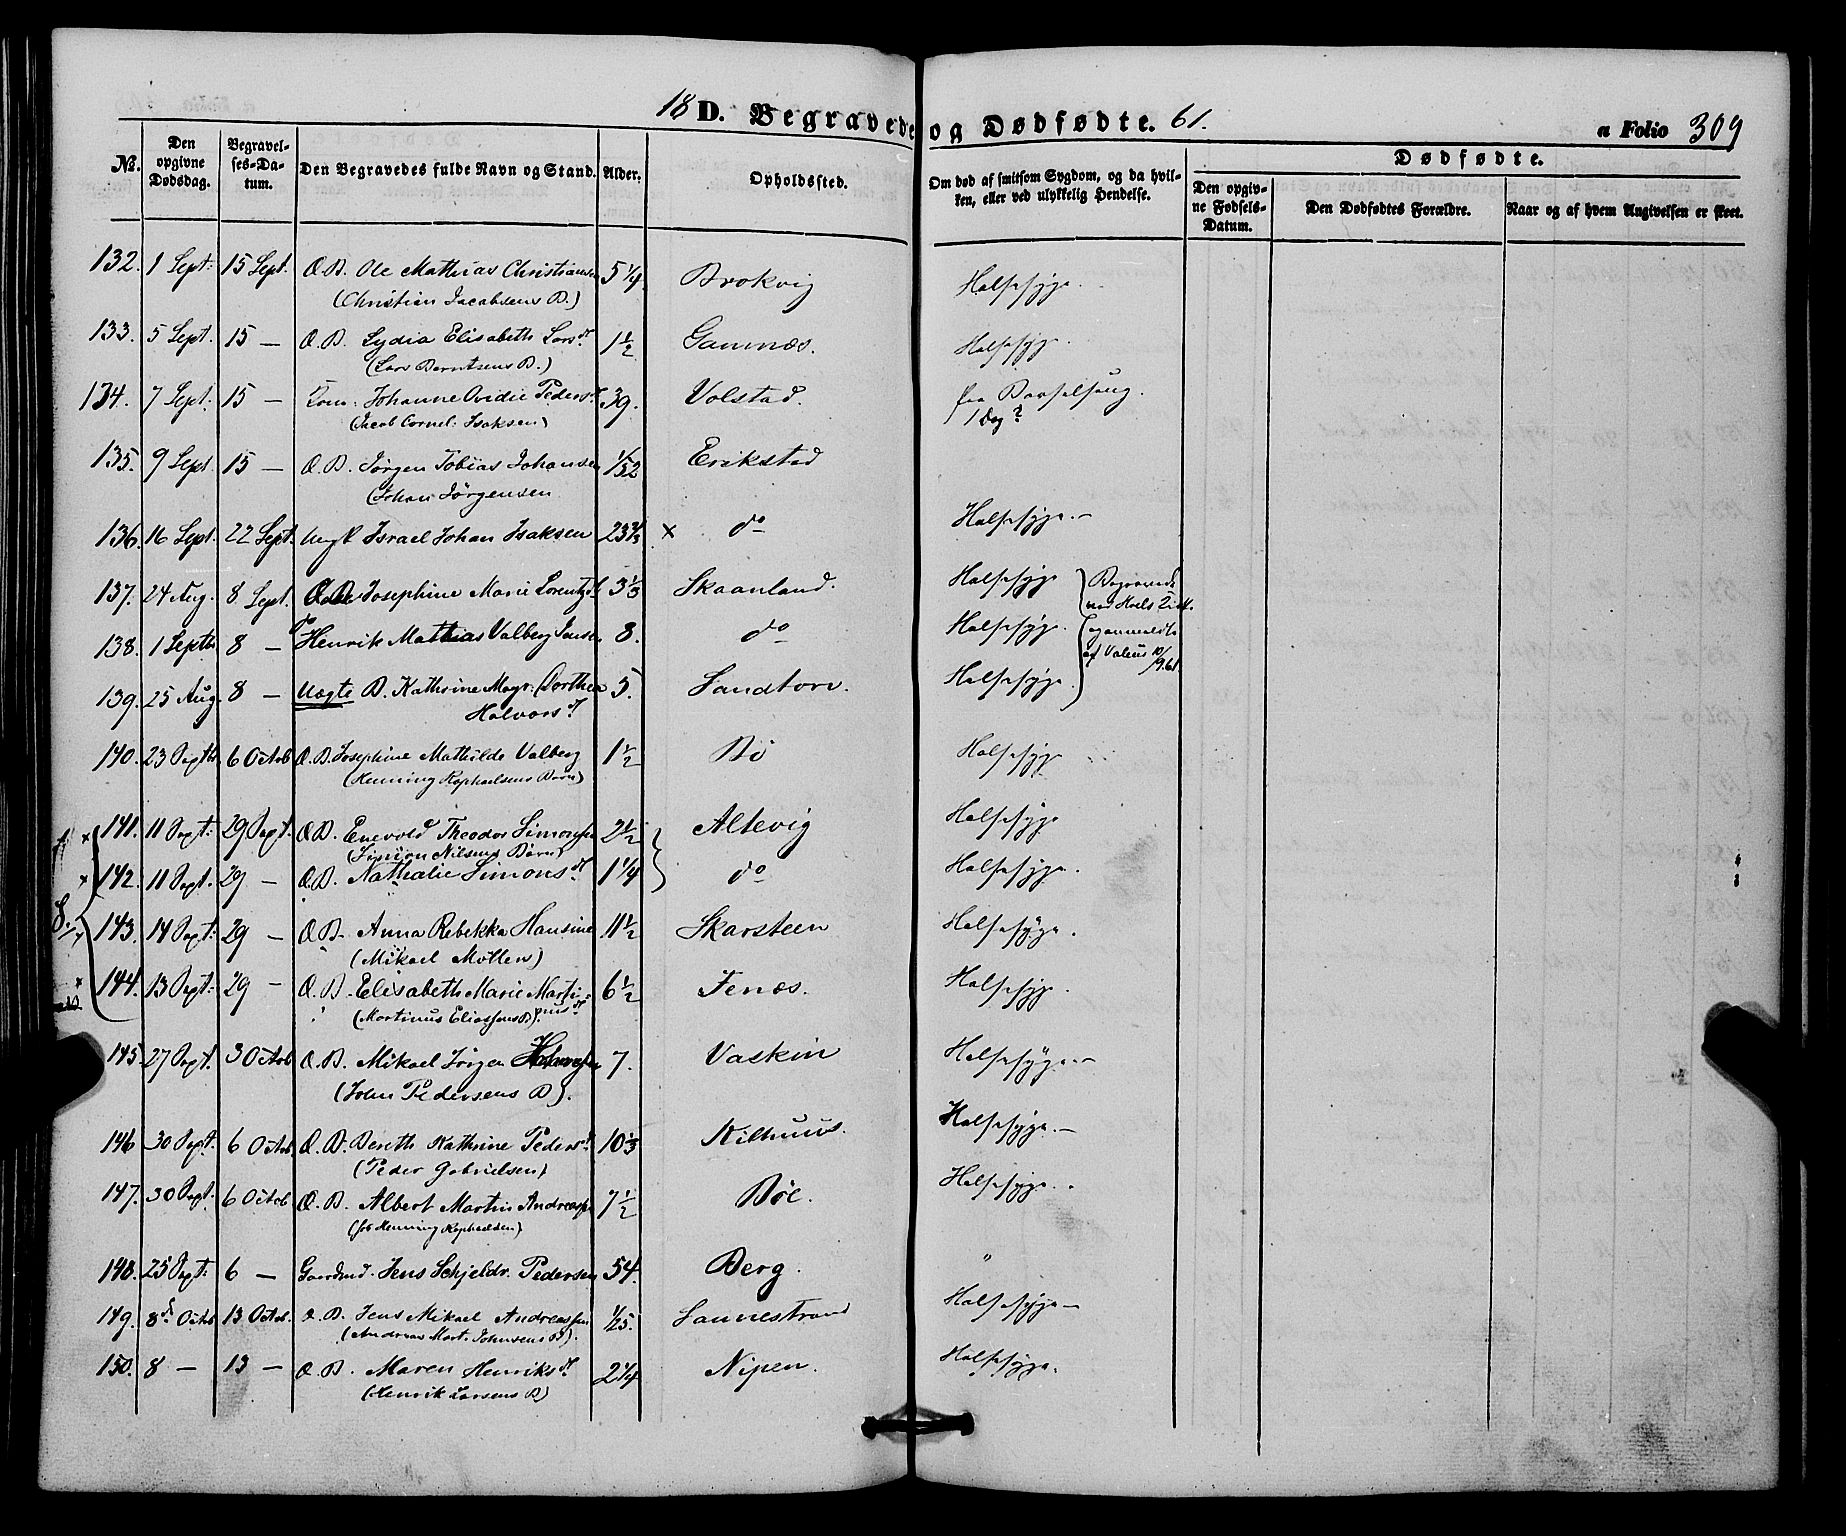 18 D. Begravede og Dødfødte. 61.
a Folio 309
No. Den opgivne Dødsdag. Begravelses-Datum. Den Begravedes fulde Navn og Stand. Alder. Opholdssted. Om død af smitsom Sygdom, og da hvilken, eller ved ulykkelig Hendelse. Dødfødte.
Den opgivne Fødsels-Datum. Den Dødfødtes Forældre. Naar og af hvem Angivelsen er skeet.
132. 1 Sept: 15 Sept. Æ.B. Ole Mathias Christiansen 5 1/4 Brokvig Halssyge.
(Christian Jacobsens B.)
133. 5 Sept. 15 — Æ.B. Lydia Elisabeth Larsdt 1 1/2 Gamnæs. Halssyge.
(Lars Berntsens B.)
134. 7 Sept. 15 — Kone. Johanne Ovidie Pedersdt 39. Volstad. paa Barselseng.
(Jacob Cornel. Isaksen) 1 Dag?
135. 9 Sept 15 — Æ.B. Jørgen Tobias Johansen 1/52 Erikstad
(Johan Jørgensen
136. 16 Sept. 22 Sept. Ungk Israel Johan Isaksen 23 3/4 × do Halssyge.—
137. 24 Aug. 8 Sept. Æ.B. Josephine Marie Lorentzdt 3 1/3 Skaanland. Halssyge Begravede ved Hols
138. 1 Septb 8 — Henrik Mathias Valberg Jensen 8. do Halssyge. anmeldt af 10/9.61
139. 25 Aug. 8 — Uægte B. Kathrine Magr. Dorthea 5. Sandtorv. Halssyge.
Halvorsdt
140. 23 Septb 6 Octob Æ.B. Josephine Mathilde Valberg 1 1/2 Bö Halssyge
(Henning Raphaelsens Barn)
141. 11 Sept: 29 Sept. Æ.B. Enevold Theodor Simonsen 2 1/2 Altevig Halssyge
(Simon Nilsens Børn)
142. 11 Sept. 29 — Æ.B. Nathalie Simonsdt 1 1/4 do Halssyge.
143. 14 Sept: 29 — Æ.B. Anna Rebekka Hansine 11 1/2 Skarsteen Halssyge.
(Mikael Mollers)
144. 13 Sept: 29 — Æ.B. Elisabeth Marie Marti- 6 1/2 Fenæs. Halssyge.
(Martinus Eliassens B). nusdt
145. 27 Sept. 3 Octob Æ.B. Mikael Jørgen 7. Vaskin Halssyge.—
(John Pedersens B).
146 30 Sept. 6 Octob. Æ.B. Bereth Kathrine Pedersdt 10 1/3 Kilhuus. Halssyge.—
(Peder Gabrielsen)
147. 30 Sept. 6 Octob Æ.B. Albert Martin Andreassen 7 1/2 Böe. Halssyge.
(hos Henning Raphaelsen)
148. 25 Sept: 6 — Gaardmd. Jens Schjeldr. Pedersen 54. Berg. "
149. 8d Octob 13 Octob. Æ.B. Jens Mikael Andreassen 1/25. Sannestrand Halssyge—
(Andreas Mart. Johnsens B).
150. 8 — 13 — Æ.B. Maren Henriksdt 2 1/4 Nipen. Halssyge.
(Henrik Larsens B)